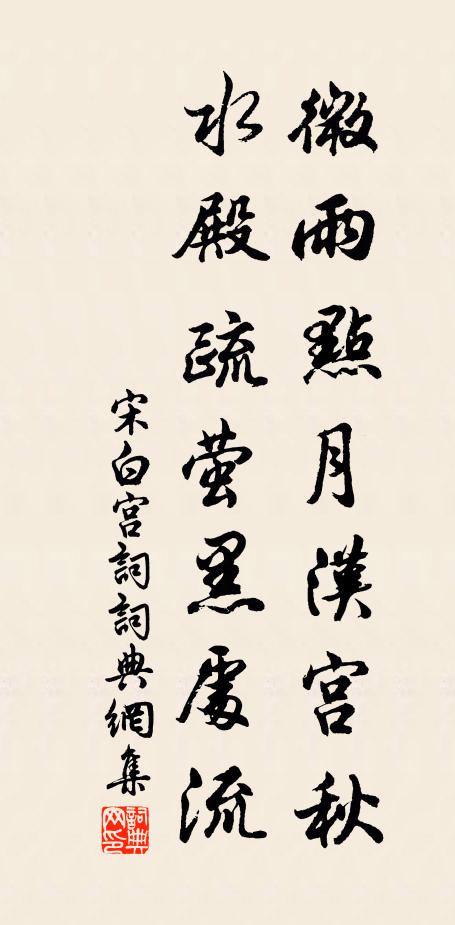 微雨點月漢宮秋
水殿疏萤黑處流
宋白宮詞詞典網集
詞典網印